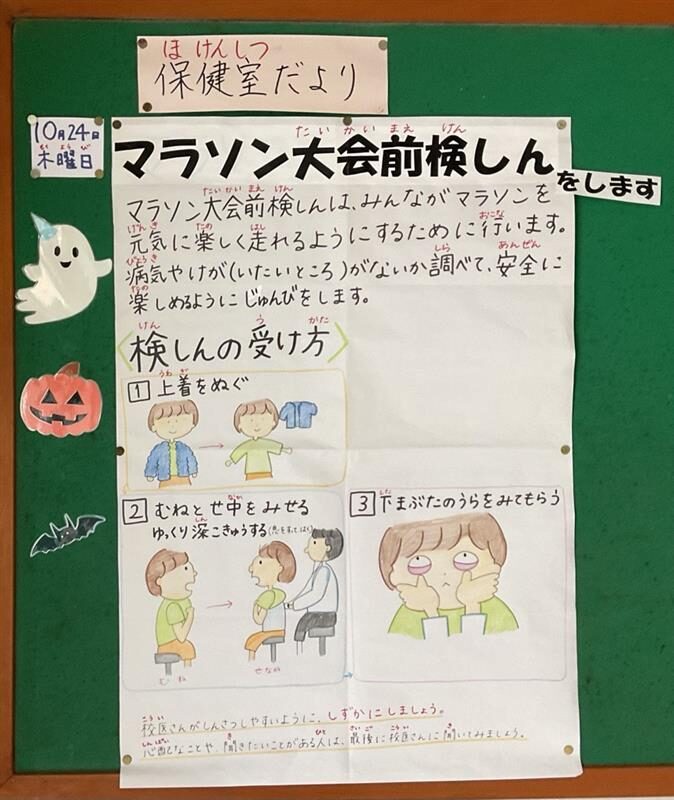 保健室だより
10月24日
木曜日
マラソン大会前検しんをします
マラソン大会前検しんは、みんながマラソンを
元気に楽しく走れるようにするために行います。
病気やけが(いたいところ)がないか調べて、安全に
楽しめるようにじゅんびをします。
〈検しんの受け方〉
1 上着をぬぐ
2 むねとせ中をみせる
ゆっくり深こきゅうする(息をすってはく)
むね
せなか
3 下まぶたのうらをみてもらう
校医さんがしんさつしやすいように、しずかにしましょう。
心配なことや、聞きたいことがある人は、最後に校医さんに聞いてみましょう。